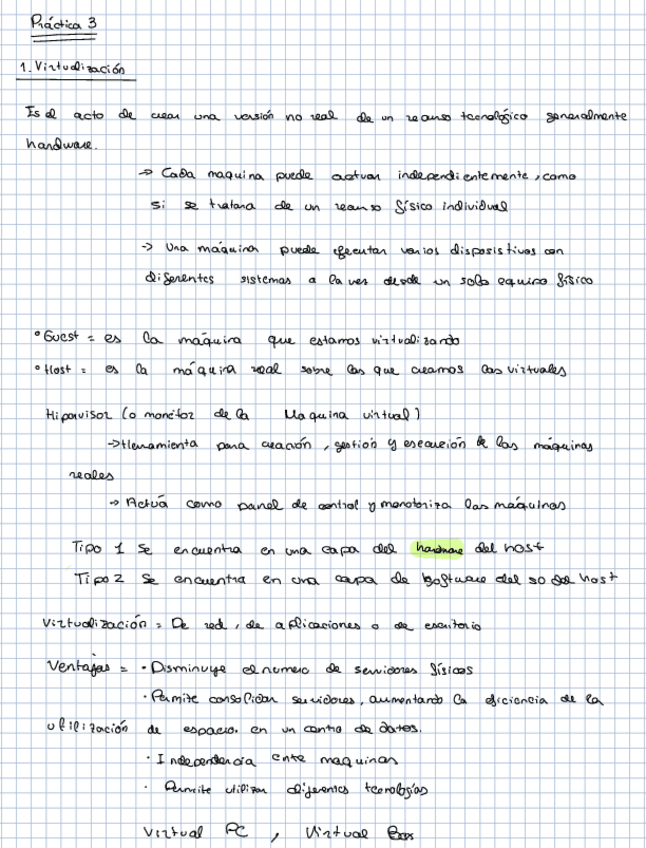 Práctica 3
1. Virtualización
Es el acto de crear una versión no real de un recurso tecnológico generalmente
hardware.
→ Cada maquina puede actuar independientemente, como
si se tratara de un recurso físico individual
→ Una máquina puede ejecutar varios disposistivos con
diferentes sistemas a la vez desde un solo equipo físico
° Guest = es la máquina que estamos virtualizando
° Host = es la máquina real sobre las que creamos las virtuales
Hipervisor (o monitor de la Maquina virtual)
→ Herramienta para creación, gestión y ejecución de las máquinas
reales
→ Actúa como panel de control y monotoriza las máquinas
Tipo 1 Se encuentra en una capa del hardware del host
Tipo 2 Se encuentra en una capa de software del so del host
Virtualización = De red, de aplicaciones o de escritorio
Ventajas = · Disminuye el numero de servidores físicos
· Permite consolidar servidores, aumentando la eficiencia de la
utilización de espacio. en un centro de datos.
· Independencia ente maquinas
· Permite utilizar diferentes tecnologías
Virtual PC , Virtual Box